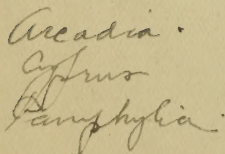 Arcadia.
Cyprus
Pamphylia.